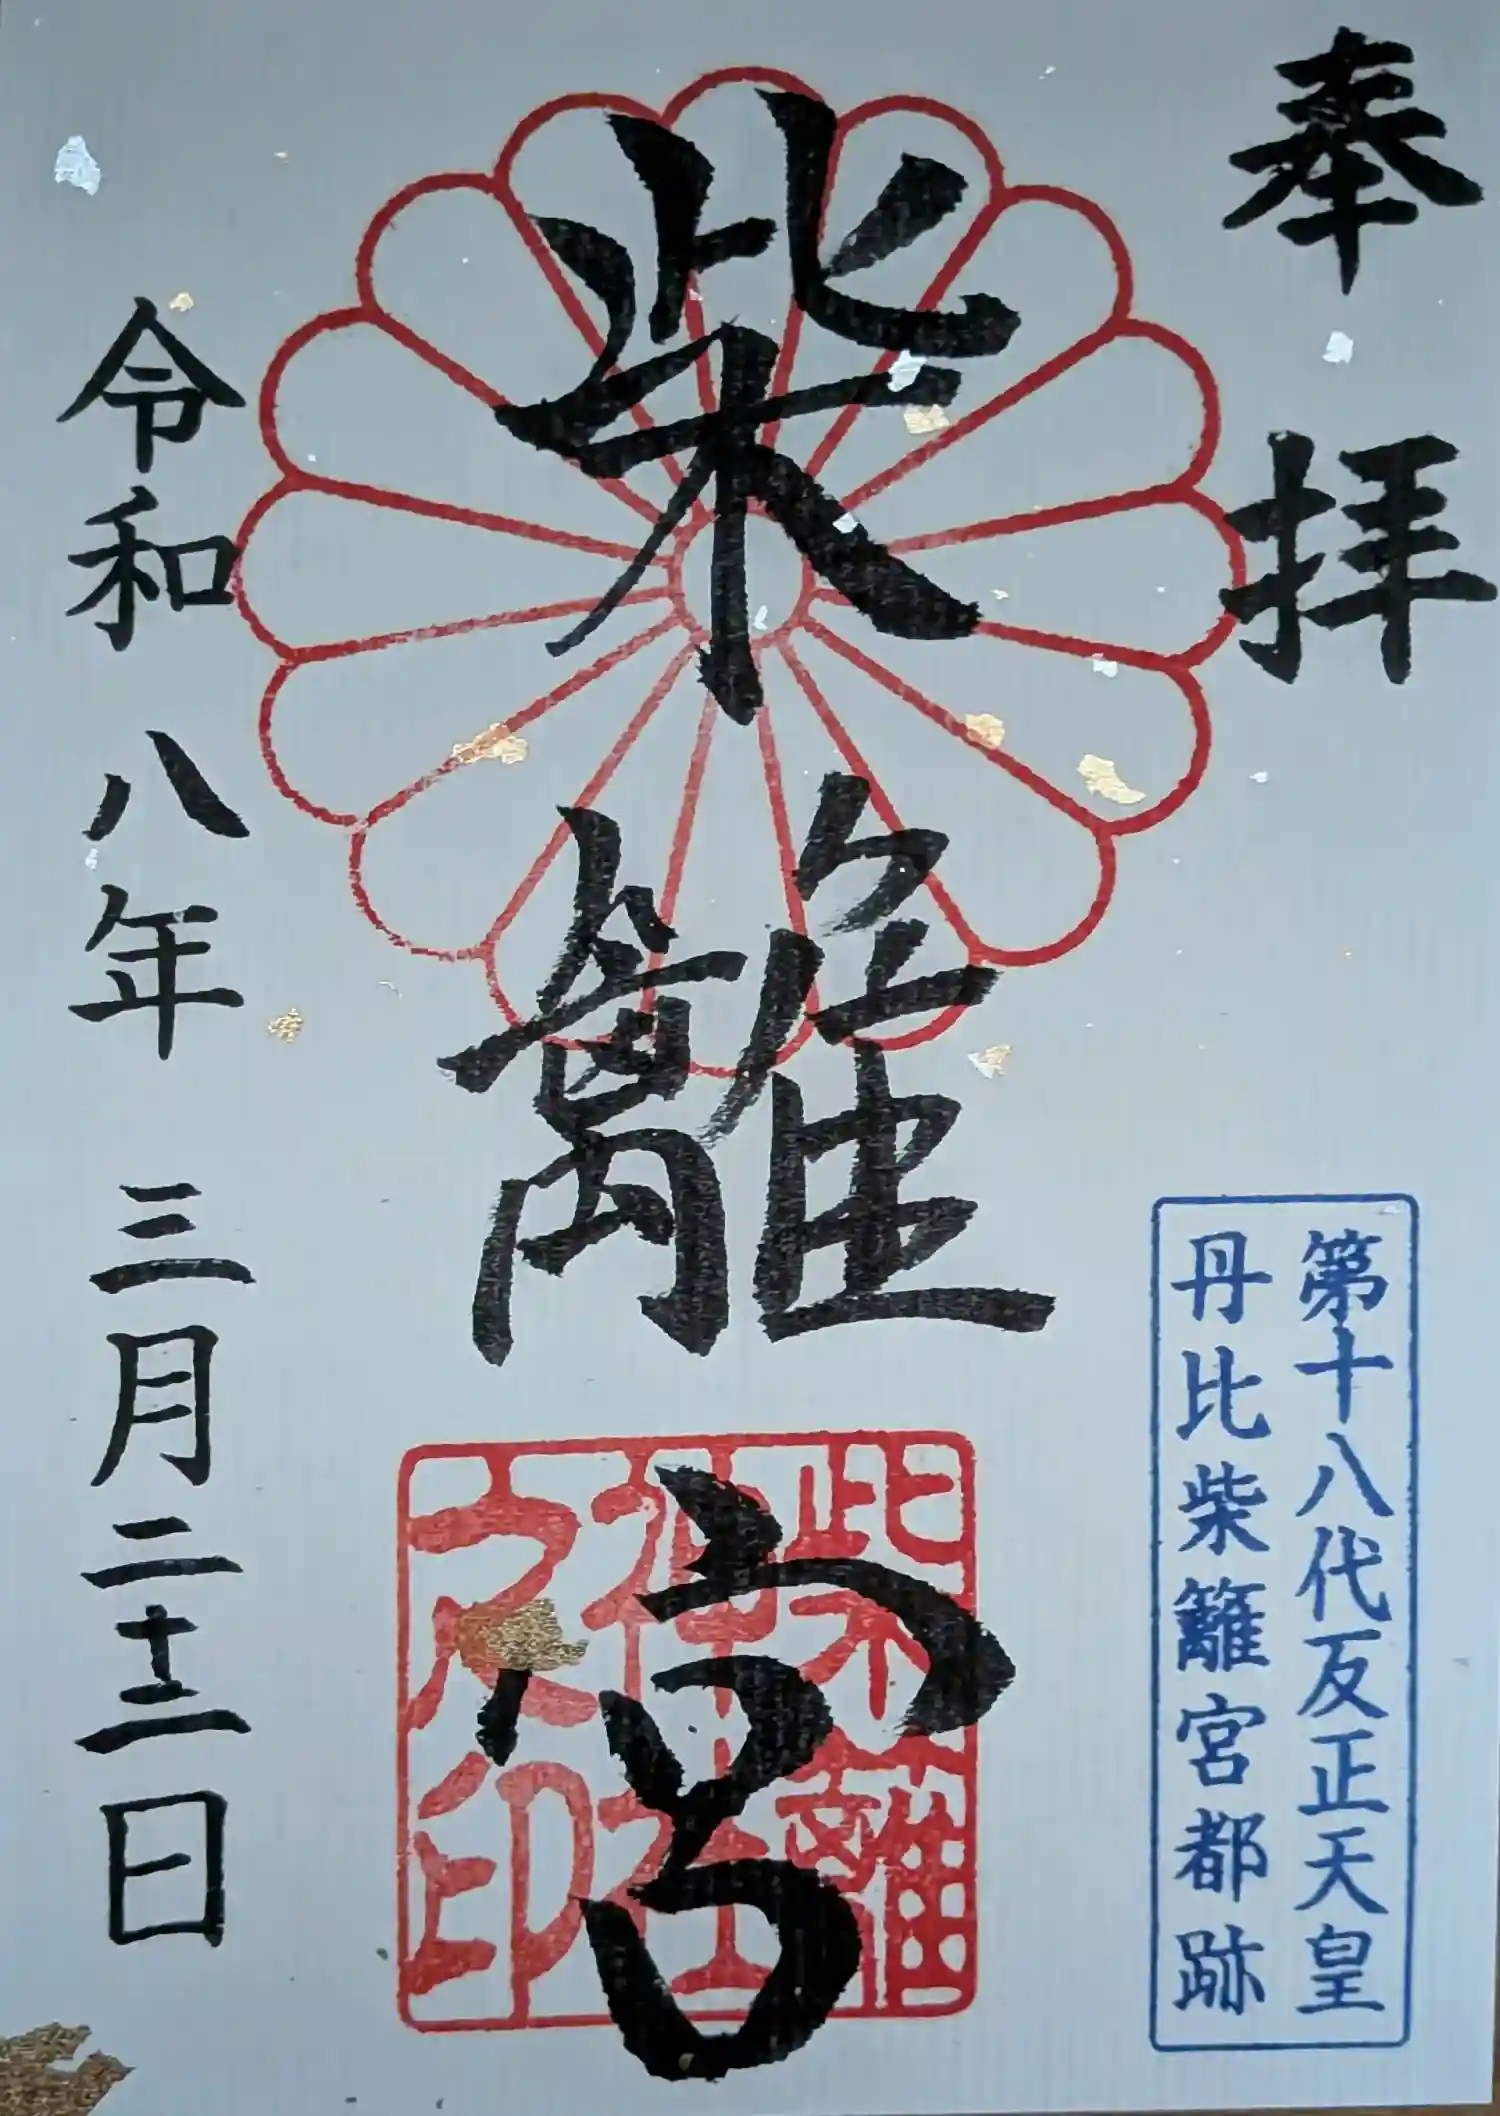 奉拝
第十八代反正天皇
丹比柴籬宮都跡
柴籬宮
令和八年三月二十二日